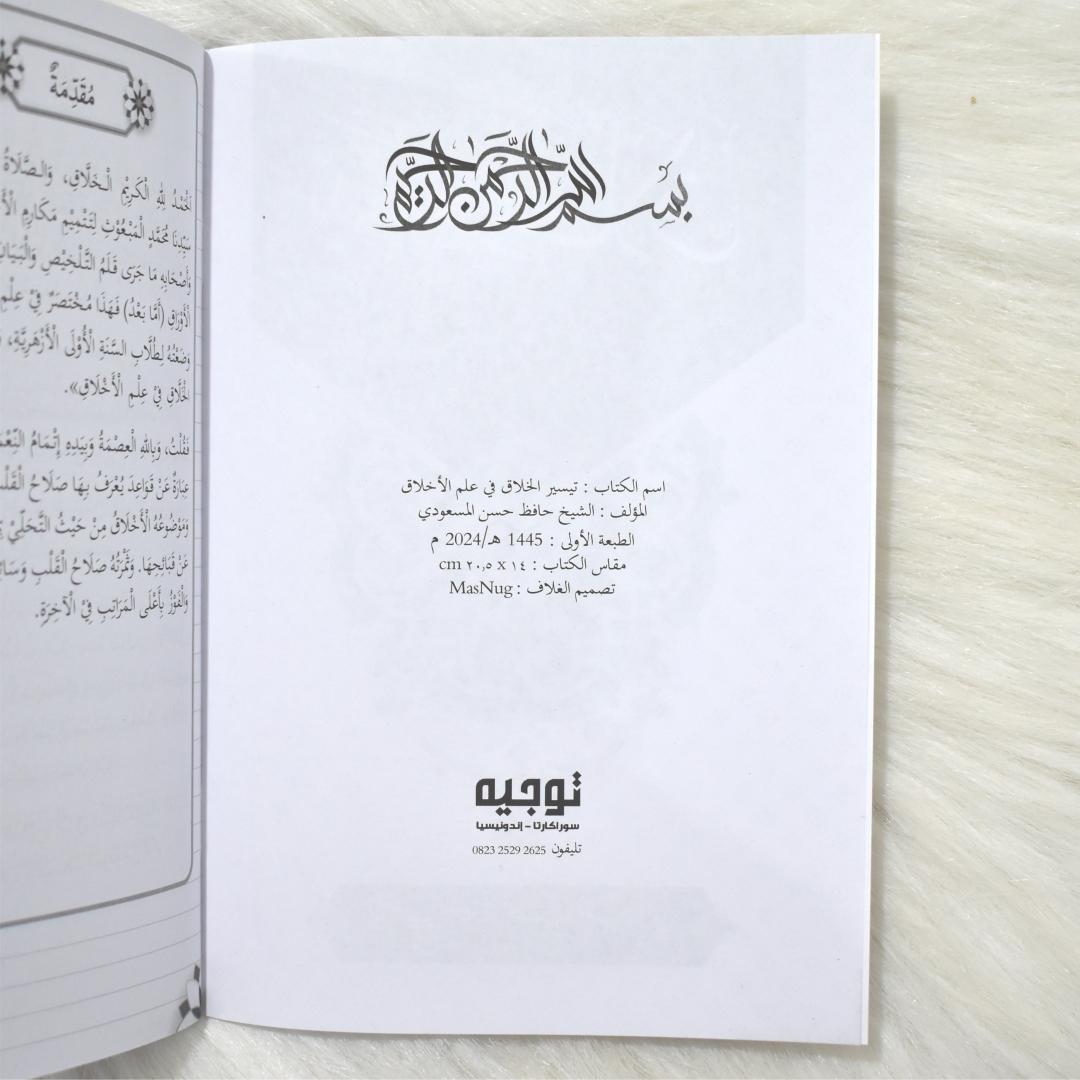 بسم الله الرحمن الرحيم
اسم الكتاب : تيسير الخلاق في علم الأخلاق
المؤلف : الشيخ حافظ حسن المسعودي
الطبعة الأولى : 1445 هـ/2024 م
مقاس الكتاب : ١٤ x ٢٠,٥ cm
تصميم الغلاف : MasNug
توجيه
سوراكارتا - إندونيسيا
تليفون 0823 2529 2625
مُقَدِّمَةٌ
الْحَمْدُ لِلهِ الْكَرِيْمِ الْخَلَّاقِ، وَالصَّلَاةُ
سَيِّدِنَا مُحَمَّدٍ الْمَبْعُوْثِ لِتَتْمِيْمِ مَكَارِمِ
وَأَصْحَابِهِ مَا جَرَى قَلَمُ التَّلْخِيْصِ وَالْبَيَانِ
الْأَوْرَاقِ (أَمَّا بَعْدُ) فَهَذَا مُخْتَصَرٌ فِيْ عِلْمِ
وَضَعْتُهُ لِطُلَّابِ السَّنَةِ الْأُوْلَى الْأَزْهَرِيَّةِ،
الْخَلَّاقِ فِيْ عِلْمِ الْأَخْلَاقِ».
فَقُلْتُ، وَبِاللهِ الْعِصْمَةُ وَبِيَدِهِ إِتْمَامُ
عِبَارَةٌ عَنْ قَوَاعِدَ يُعْرَفُ بِهَا صَلَاحُ
وَمَوْضُوْعُهُ الْأَخْلَاقُ مِنْ حَيْثُ التَّحَلِّيْ
عَنْ قَبَائِحِهَا. وَثَمْرَتُهُ صَلَاحُ الْقَلْبِ
وَالْفَوْزُ بِأَعْلَى الْمَرَاتِبِ فِيْ الْآخِرَةِ.